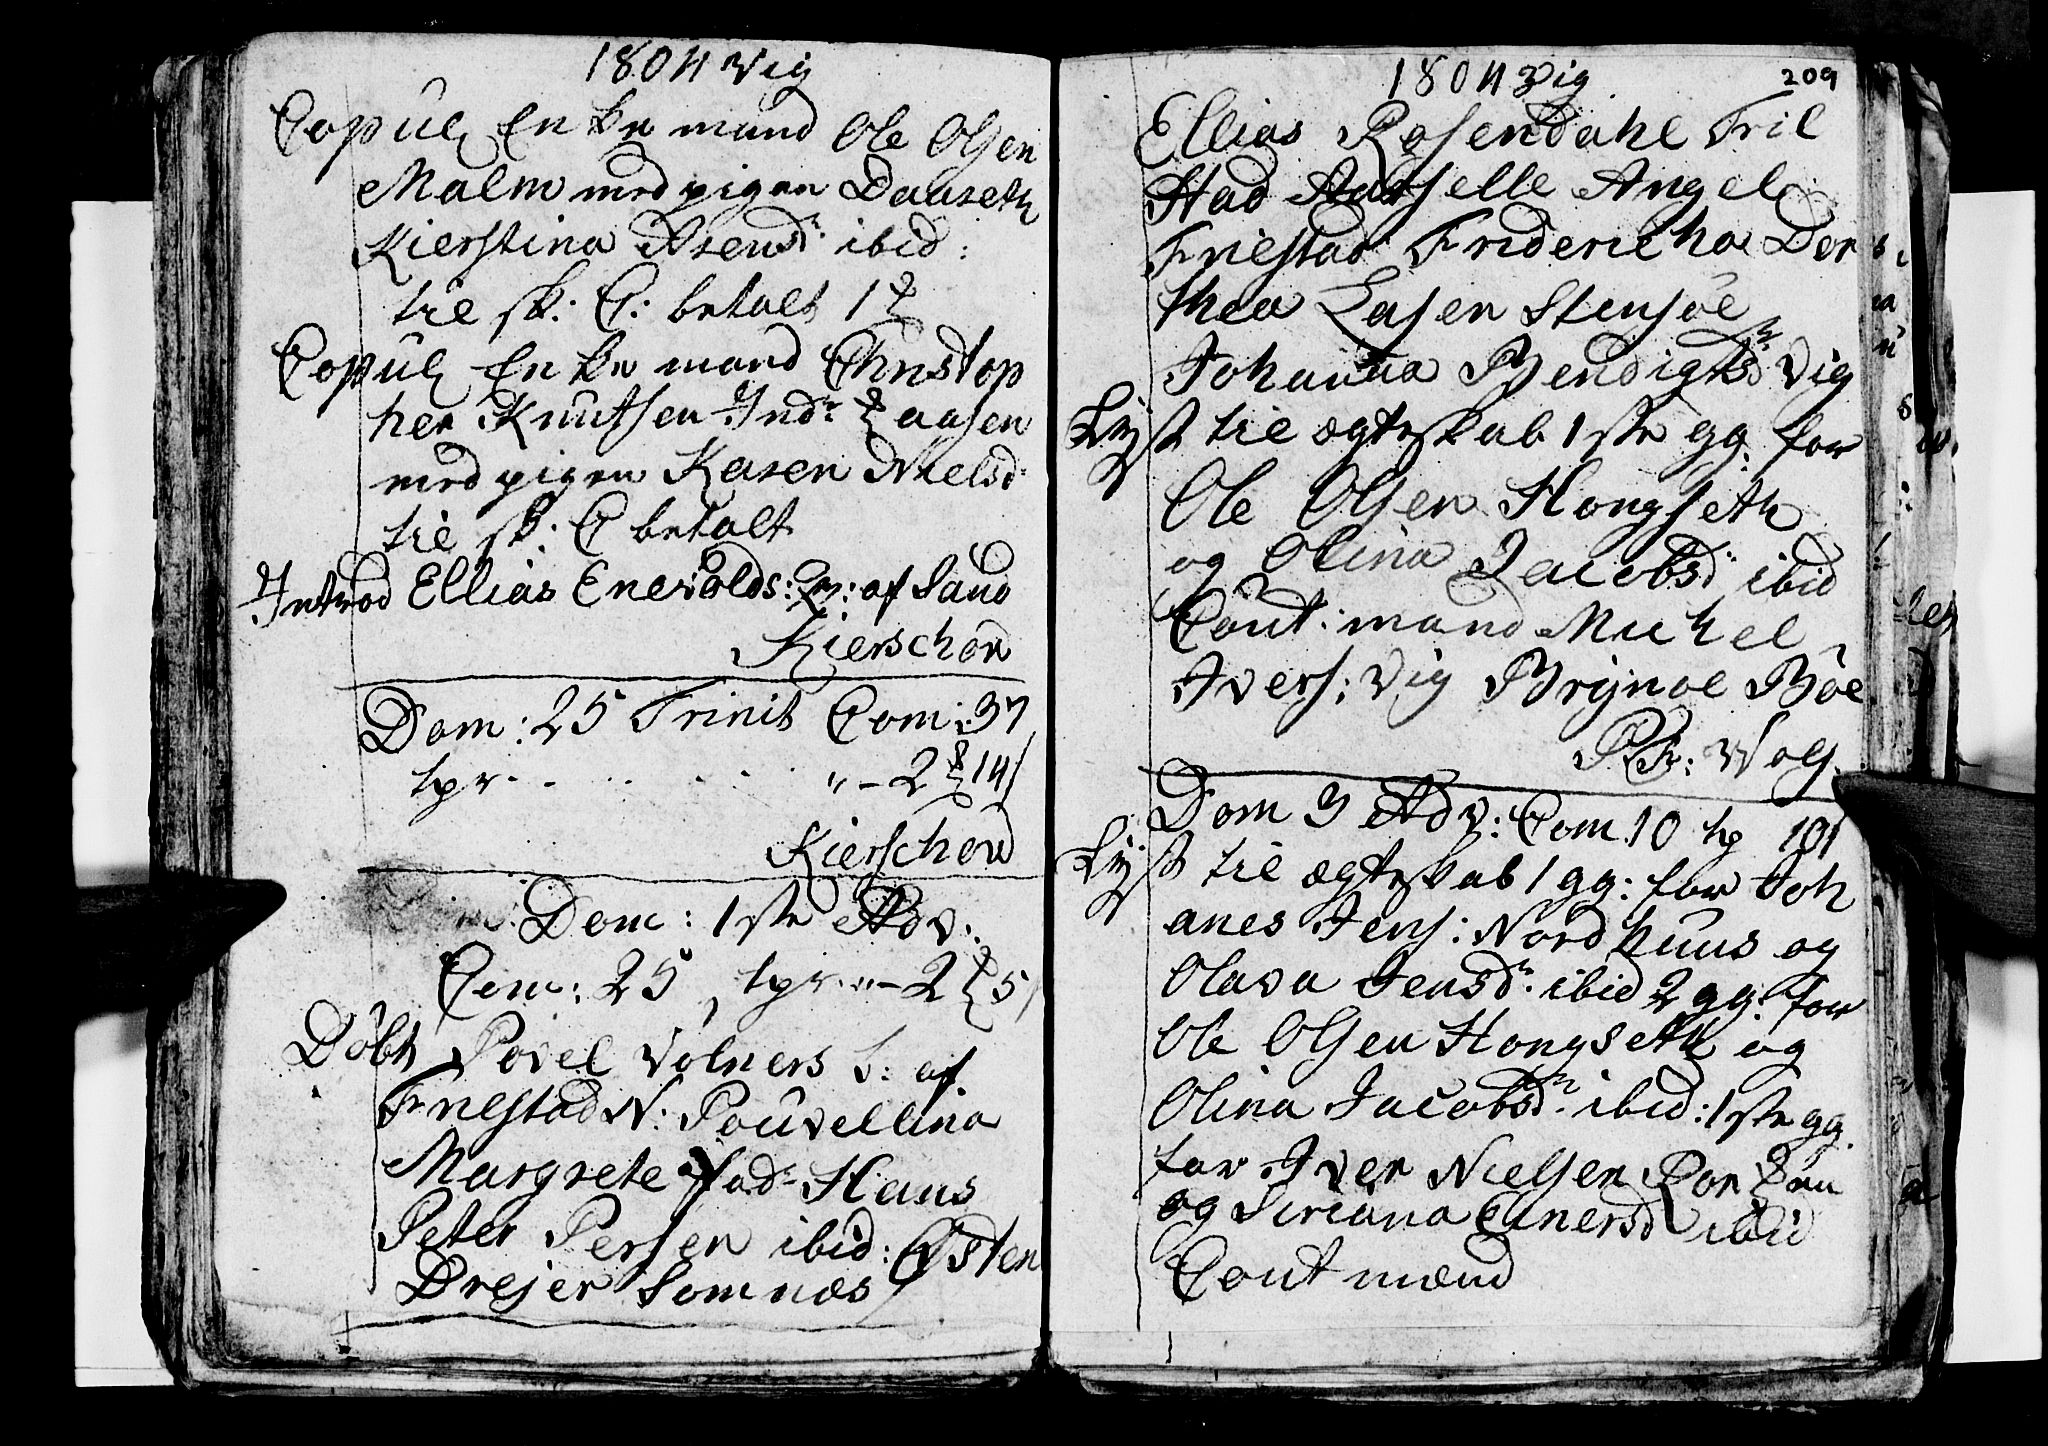 1804 Vig
Copul Enkemand Ole Olsen
Malm med pigen Dauseth
Kierstina Arensd: ibid:
til sk: C: betalt 1
Copul Enkemand Christop
her Knutsen Indr aasen
med pigen Karen Nielsd
til sk: C betalt
Introd Ellias Enevolds: q: af Saud
Kierschou
Dom: 25 Trinit Com: 37
tpr " - 2 14
Kierschou
Dom: 1ste Adv:
Com: 25 tpr " - 2 5
Döbt Povel Volners S: af
Friestad N: Pouvellina
Margrete fadr Hans
Peter Persen ibid: Østen
Drejer Somnæs
1804 Vig 209
Ellias Rosendahl Tril
stad Aatselle Angel
Friestad Fridericha Dor
thea Lasen Stensöe
Johanna Bendigtsdr Vig
Lyst til ægteskab 1ste gg: for
Ole Olsen Hongseth
og Olina Jacobsd: ibid
Cout: mand Michel
Ivers: Vig Brynoe Böe
PR: Wolf.
Dom 3 Adv: Com 10 tp 101
Lyst til ægteskab 1 gg: for Joh
anes Jens: Nordhuus og
Olava Jensdr. ibid 2 gg: for
Ole Olsen Hongseth og
Olina Jacobsdr. ibid: 1ste gg.
for Iver Nielsen
og Siriana Einersd ibid
Cout mænd